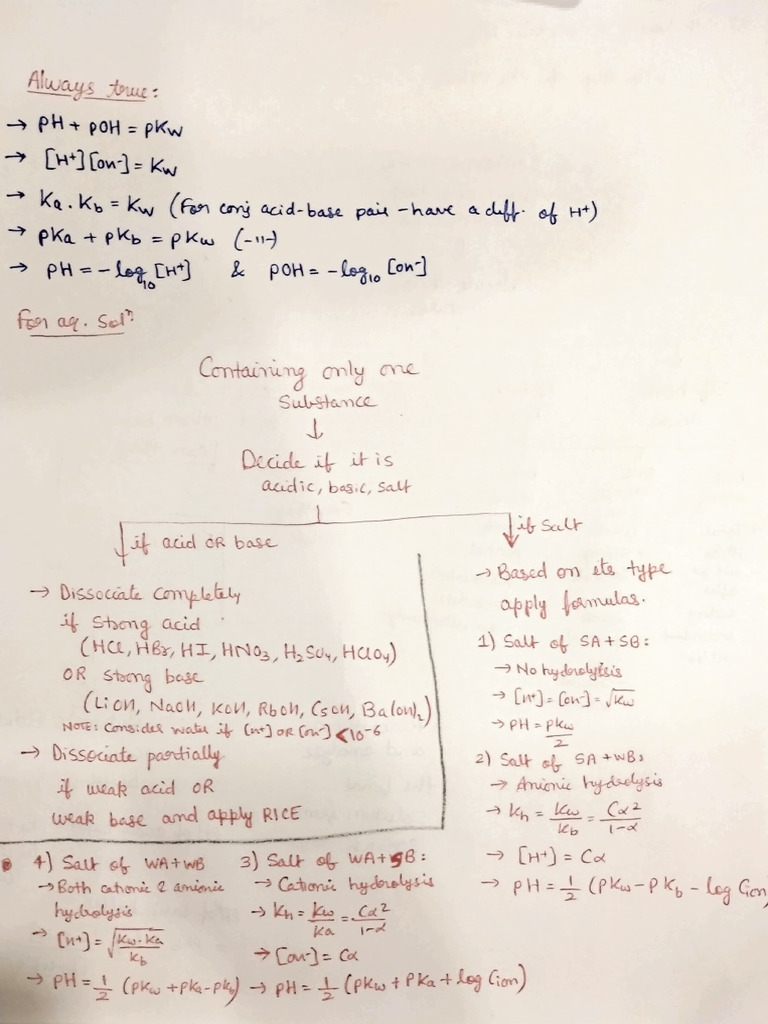 Always true:
→ pH + pOH = pKw
→ [H⁺][OH⁻] = Kw
→ Ka. Kb = Kw (For conj acid-base pair - have a diff. of H⁺)
→ pKa + pKb = pKw (-11-)
→ pH = -log₁₀ [H⁺] & pOH = -log₁₀ [OH⁻]
For aq. Solⁿ
Containing only one
Substance
↓
Decide if it is
acidic, basic, salt
if acid OR base
→ Dissociate completely
if strong acid
(HCl, HBr, HI, HNO₃, H₂SO₄, HClO₄)
OR strong base
(LiOH, NaOH, KOH, RbOH, CsOH, Ba(OH)₂)
NOTE: Consider water if [H⁺] OR [OH⁻] < 10⁻⁶
→ Dissociate partially
if weak acid OR
weak base and apply RICE
if Salt
→ Based on its type
apply formulas.
1) Salt of SA + SB:
→ No hydrolysis
→ [H⁺] = [OH⁻] = √Kw
→ pH = pKw/2
2) Salt of SA + WB:
→ Anionic hydrolysis
→ Kh = Kw/Kb = Cα²/1-α
→ [H⁺] = Cα
→ pH = 1/2 (pKw - pKb - log Cion)
3) Salt of WA + SB:
→ Cationic hydrolysis
→ Kh = Kw/Ka = Cα²/1-α
→ [OH⁻] = Cα
→ pH = 1/2 (pKw + pKa + log Cion)
4) Salt of WA + WB
→ Both cationic & anionic
hydrolysis
→ [H⁺] = √Kw.Ka/Kb
→ pH = 1/2 (pKw + pKa - pKb)